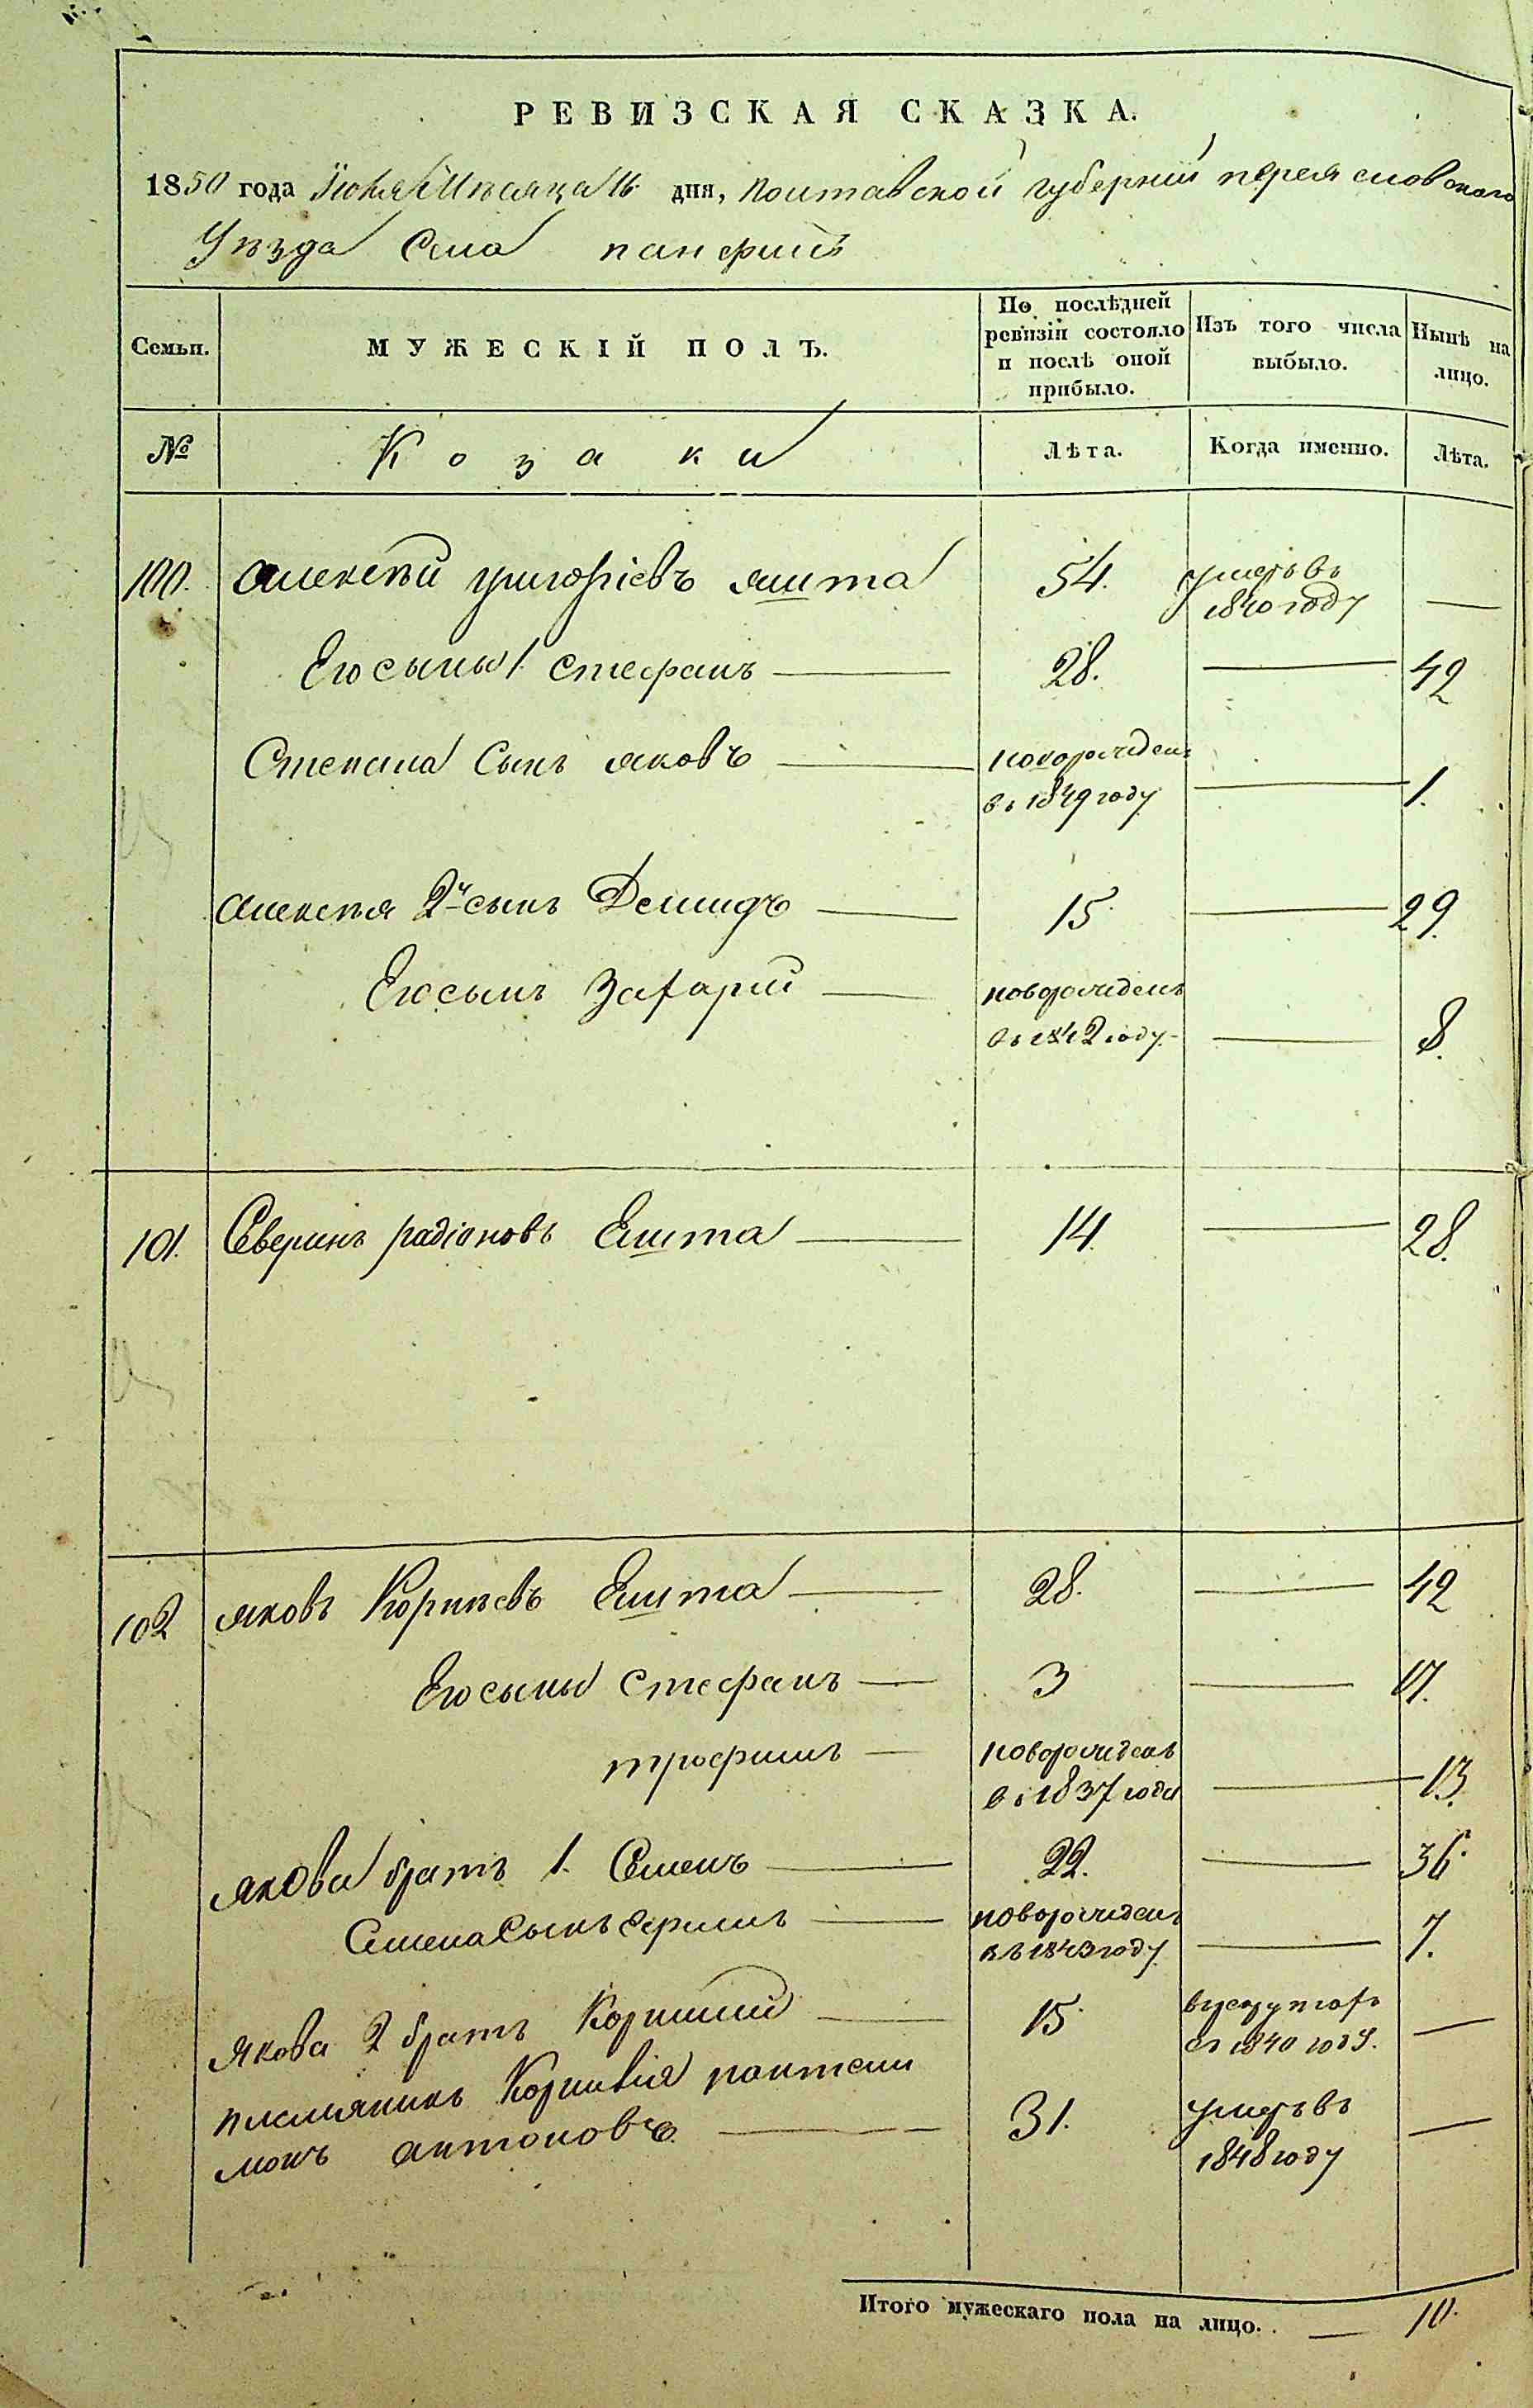 РЕВИЗСКАЯ СКАЗКА.
1850 года Июня Мѣсяца 16 дня, полтавской губерніи переяславского
Уѣзда Села панфилъ
Семьи. МУЖЕСКІЙ ПОЛЪ. По послѣдней ревизіи состояло и послѣ оной прибыло. Изъ того числа выбыло. Нынѣ на лицо.
№ Козаки Лѣта. Когда именно. Лѣта.
100. алексѣй григоріевъ ялита 54. умеръ въ 1840 году —
Его сыны 1. стефанъ — 28. — 42
Степана Сынъ яковъ — новорожденъ въ 1849 году — 1.
алексѣя 2й сынъ Демидъ — 15 — 29.
Его сынъ Захарій — новорожденъ въ 1842 году — 8.
101. Северинъ радіоновъ Елита — 14. — 28.
102 яковъ Корнѣевъ Елита — 28. — 42
Его сыны стефанъ — 3 — 17.
трофимъ — новорожденъ въ 1837 года — 13.
якова братъ 1. Семенъ — 22. — 36
Семена Сынъ — новорожденъ въ 1843 году — 7.
Якова 2 братъ Корнилий — 15 в рекрутахъ съ 1840 году. —
племяникъ Корнилія пантели
монъ антоновъ. — 31. умеръ въ 1848 году —
Итого мужескаго пола на лицо. — 10.